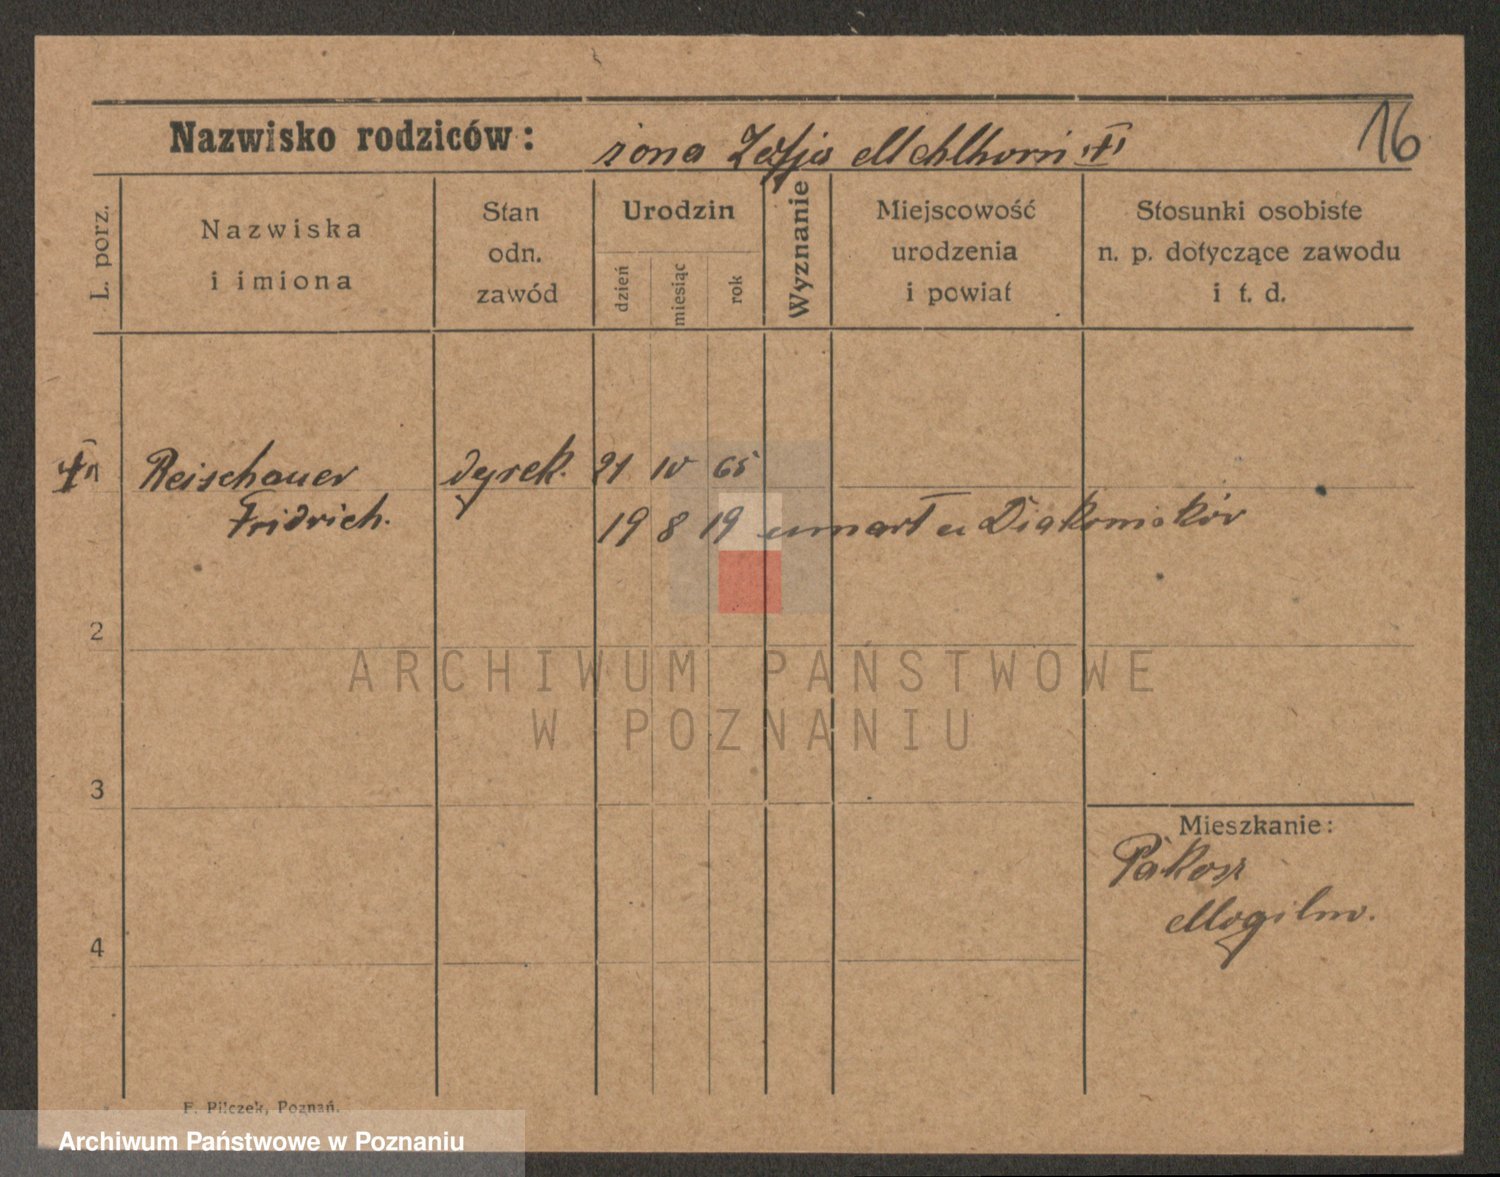 16
Nazwisko rodziców: żona Zofja Mehlhorn
L. porz.
Nazwiska
i imiona
Stan
odn.
zawód
Urodzin
dzień
miesiąc
rok
Wyznanie
Miejscowość
urodzenia
i powiat
Stosunki osobiste
n. p. dotyczące zawodu
i t. d.
Reischauer dyrek. 21 10 65
Fridrich. 19 8 19 umarł u Diakonisków
2
ARCHIWUM PAŃSTWOWE
W POZNANIU
3
Mieszkanie:
Pakosz
Mogilno.
4
F. Pilczek, Poznań.
Archiwum Państwowe w Poznaniu